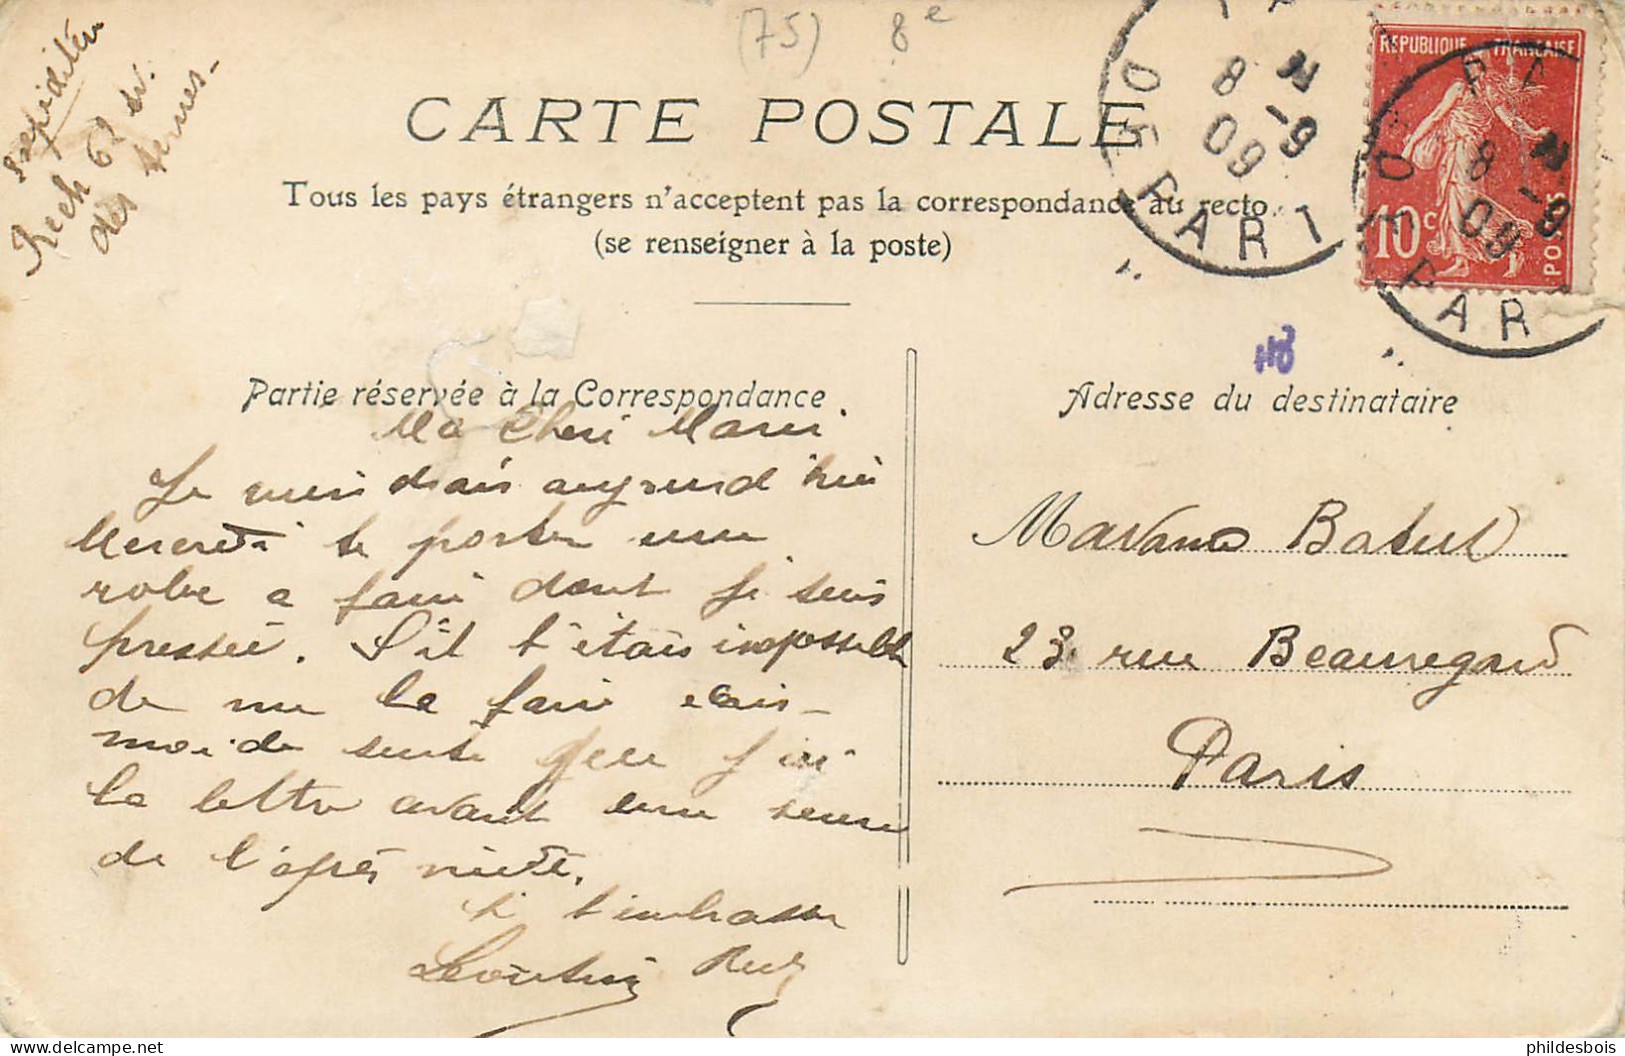 (75) 8e
expéditeur
Rech 62 av.
des Ternes-
CARTE POSTALE
Tous les pays étrangers n'acceptent pas la correspondance au recto.
(se renseigner à la poste)
REPUBLIQUE FRANÇAISE
10c
POSTES
PARIS
DEPART
8 -9
09
PARIS
DEPART
8 -9
09
Partie réservée à la Correspondance
Adresse du destinataire
Ma Cheri Mari
Je viendrais aujourd'hui
Mercredi te porter une
robe a faire dont je suis
pressée. S'il t'étais impossible
de me la faire écris-
moi de suite que j'ai
la lettre avant une heure
de l'après midi.
Je t'embrasse
Léontine Rech
Madame Batut
23 rue Beauregard
Paris
phildesbois